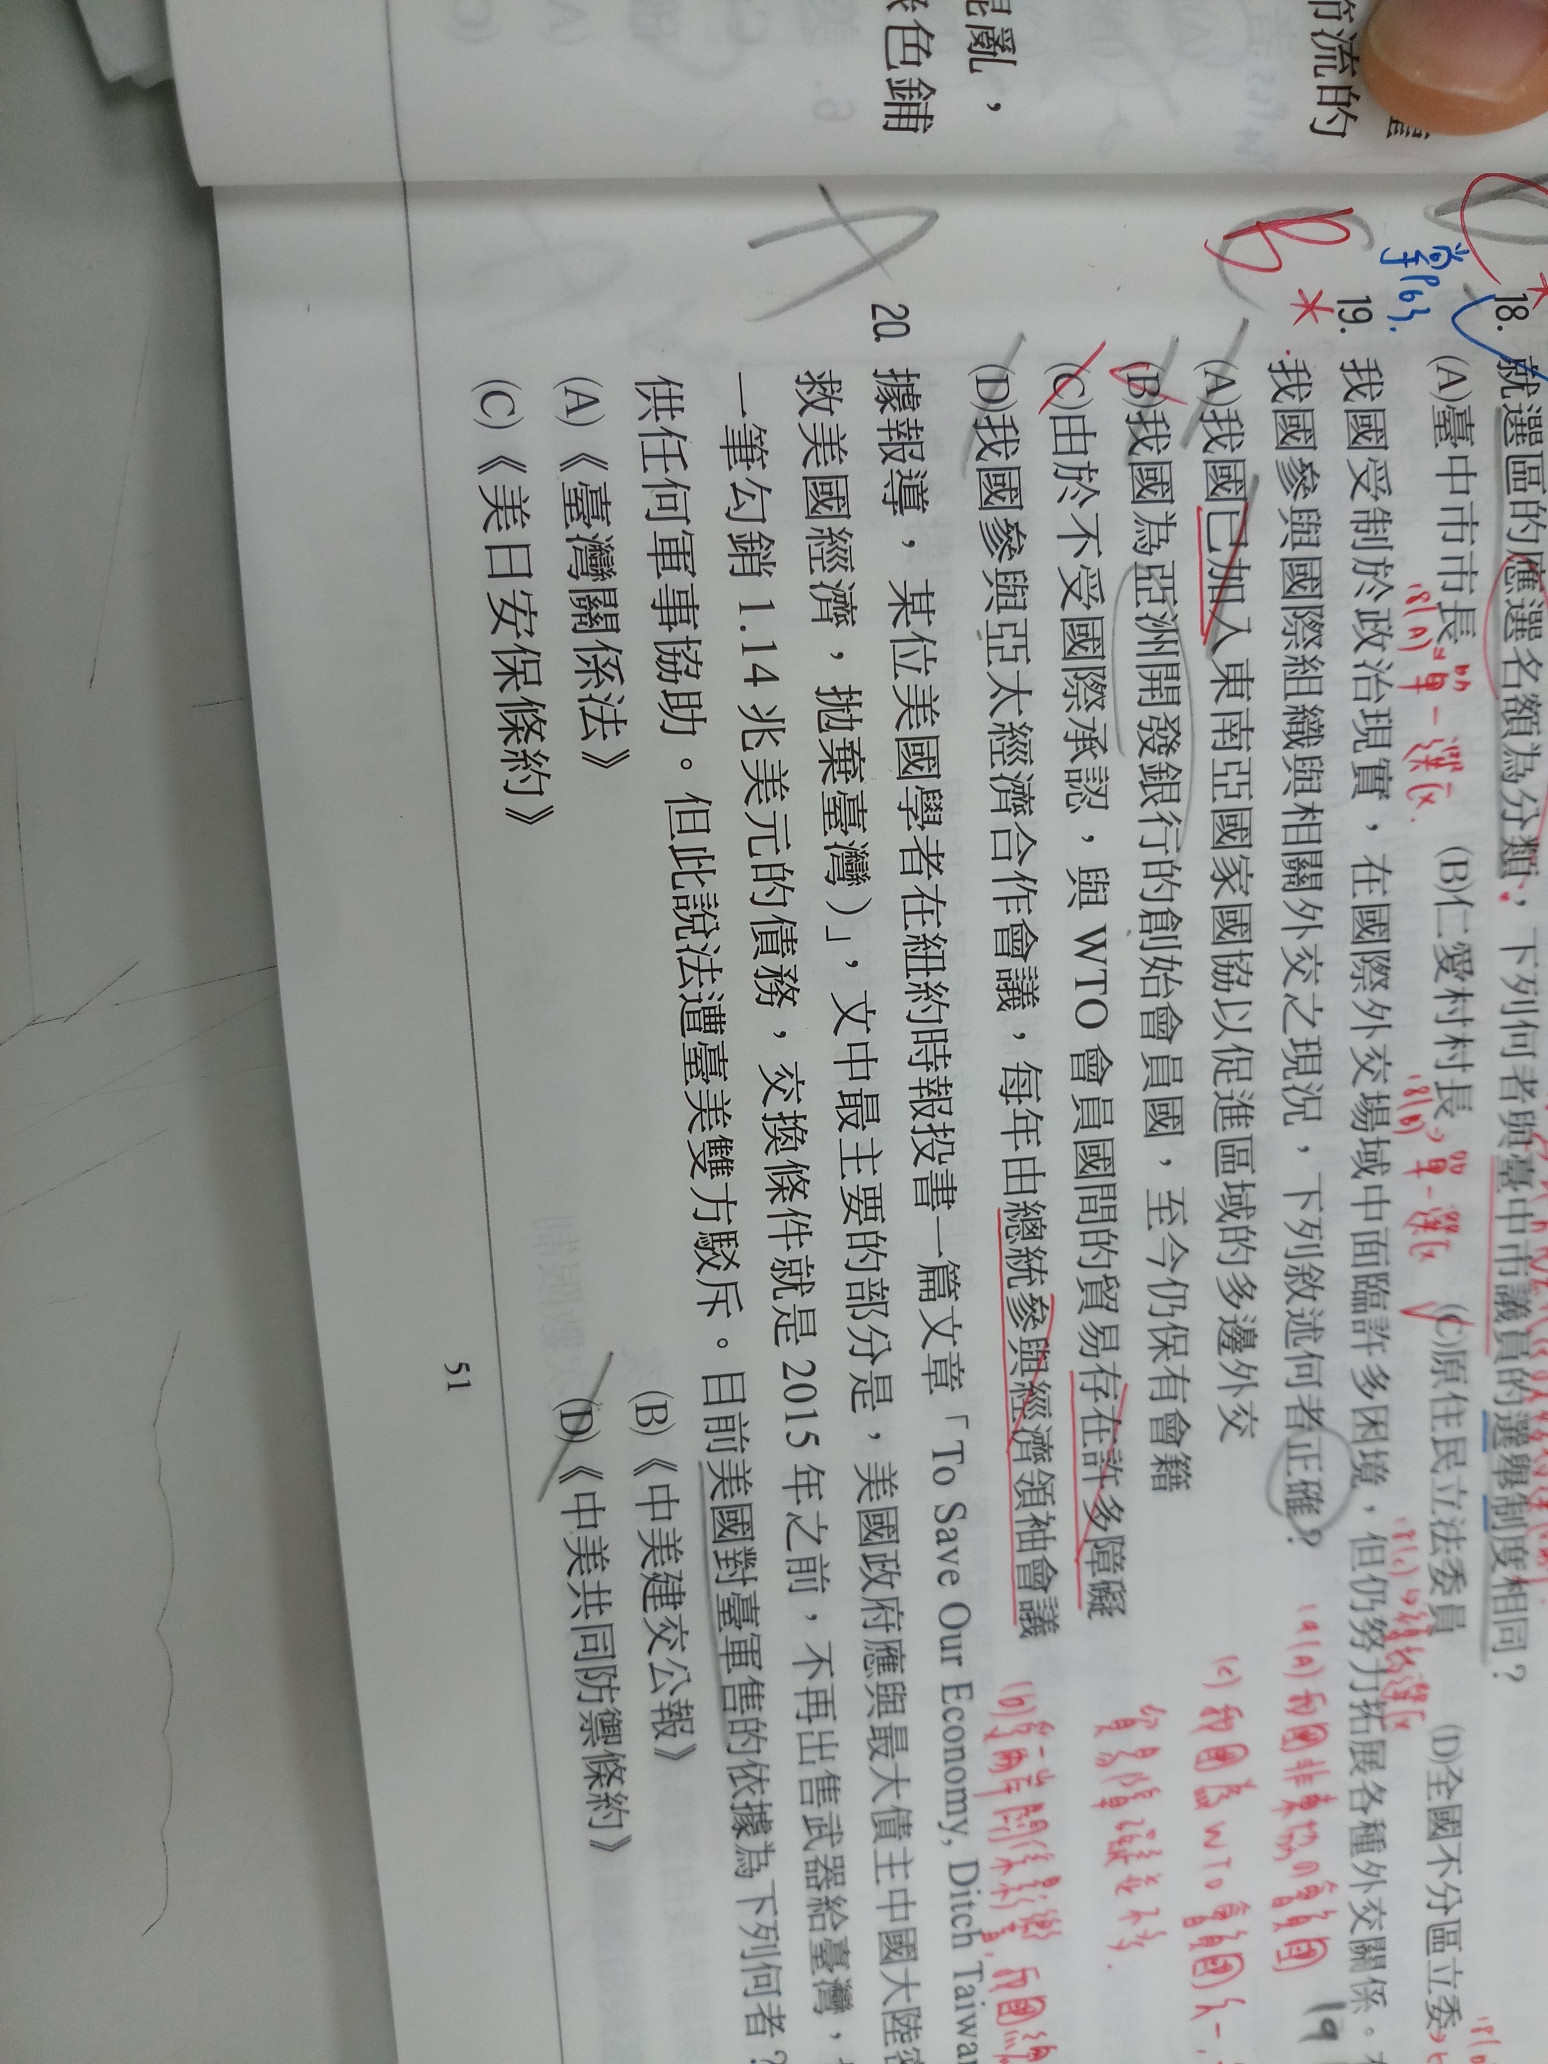 流的
混亂，
色鋪
18. 就選區的應選名額為分類，下列何者與臺中市議員的選舉制度相同？
(A)臺中市市長 (B)仁愛村村長 (C)原住民立法委員 (D)全國不分區立委
18(A)⇒單一選區
18(B)
單一選區
19. 我國受制於政治現實，在國際外交場域中面臨許多困境，但仍努力拓展各種外交關係。
我國參與國際組織與相關外交之現況，下列敘述何者正確？
19(A)我國非東協的會員國
(A)我國已加入東南亞國家國協以促進區域的多邊外交
(C)我國為WTO會員國之一，
(B)我國為亞洲開發銀行的創始會員國，至今仍保有會籍
貿易障礙並不多.
(C)由於不受國際承認，與 WTO 會員國間的貿易存在許多障礙
(D)我國參與亞太經濟合作會議，每年由總統參與經濟領袖會議
B
A
20. 據報導，某位美國學者在紐約時報投書一篇文章「To Save Our Economy, Ditch Taiwan
救美國經濟，拋棄臺灣）」，文中最主要的部分是，美國政府應與最大債主中國大陸密
一筆勾銷 1.14 兆美元的債務，交換條件就是 2015 年之前，不再出售武器給臺灣，
供任何軍事協助。但此說法遭臺美雙方駁斥。目前美國對臺軍售的依據為下列何者？
(A)《臺灣關係法》 (B)《中美建交公報》
(C)《美日安保條約》 (D)《中美共同防禦條約》
51